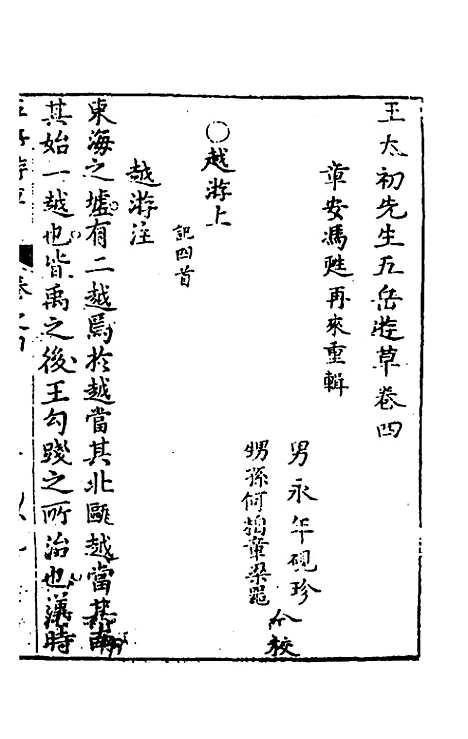 王太初先生五岳遊草卷四
章安馮甦再來重輯
男永年硯珍
甥孫何 章 仝校
○越游上
記四首
越游注
東海之墟有二越焉於越當其北甌越當其南
其始一越也皆禹之後王勾踐之所治也漢時